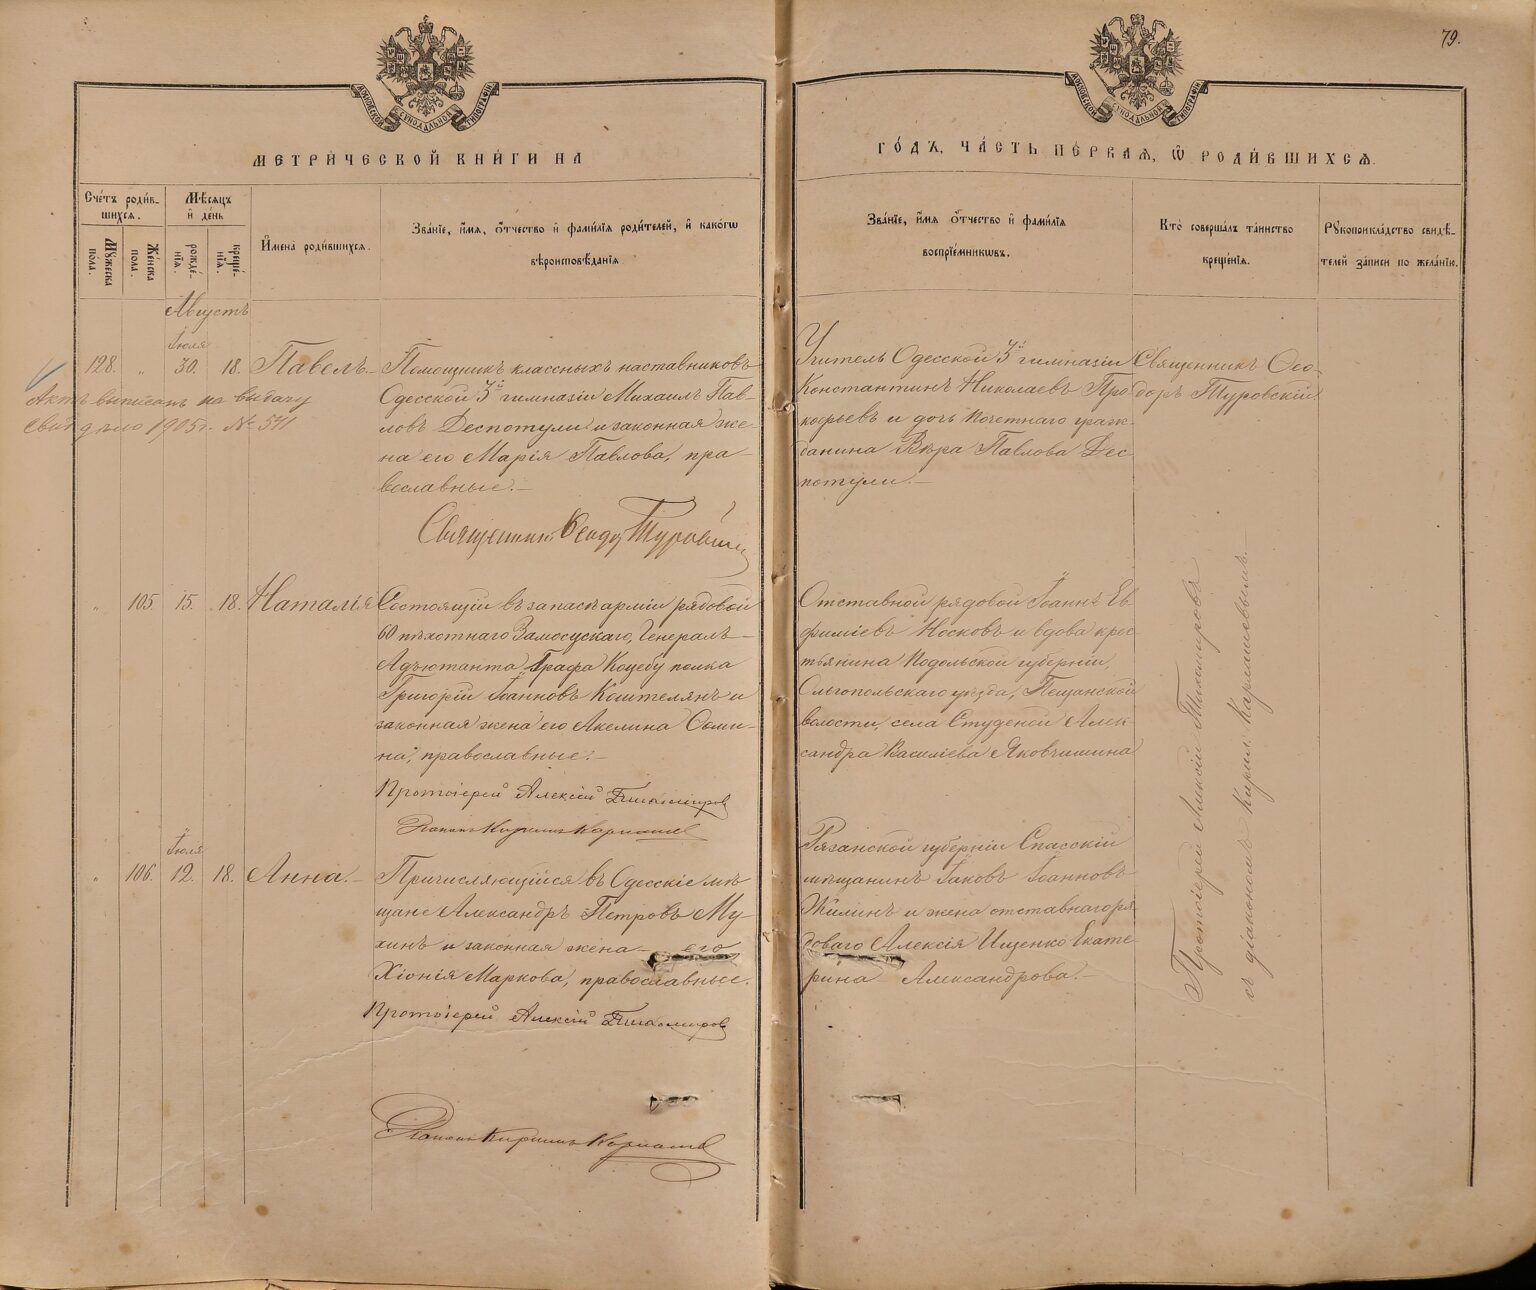 79.
МОСКОВСКОЙ СѴНОДАЛЬНОЙ ТИПОГРАФІИ
МОСКОВСКОЙ СѴНОДАЛЬНОЙ ТИПОГРАФІИ
МЕТРИ́ЧЕСКОЙ КНИ́ГИ НА
ГО́ДЪ, ЧА́СТЬ ПЕ́РВАѦ, Ѡ РОДИ́ВШИХСѦ.
Сче́тъ роди́в-
шихсѧ.
Му́жеска
по́ла.
Же́нска
по́ла.
Мѣ́сѧцъ
и де́нь
рожде́-
нїѧ.
креще́-
нїѧ.
И҆мена роди́вшихсѧ.
Зва́нїе, и҆́мѧ, ѻ҆́тчество и҆ фами́лїѧ роди́телей, и҆ како́гѡ
вѣроисповѣ́данїѧ
Зва́нїе, и҆́мѧ ѻ҆́тчество и҆ фами́лїѧ
воспрїе́мникѡвъ.
Кто̀ соверша́лъ та́инство
креще́нїѧ.
Рꙋкоприкла́дство свидѣ́-
телей за́писи по жела́нїю.
Августъ
Іюля
128. „ 30. 18. Павелъ.—
Помощникъ классныхъ наставниковъ
Одесской 3й гимназіи Михаилъ Пав-
ловъ Деспотули и законная же-
на его Марія Павлова, пра-
вославные.—
Священникъ Ѳеодоръ Туровскій
Актъ выписанъ на выдачу
свид 1905 г. № 541
Учитель Одесской 3й гимназіи
Константинъ Николаевъ Про
кофьевъ и дочь почетнаго граж-
данина Вѣра Павлова Дес-
потули.—
Священникъ Ѳео-
доръ Туровскій
„ 105. 15. 18. Наталія
Состоящій въ запасѣ арміи рядовой
60 пѣхотнаго Замосцскаго, Генералъ-
Адъютанта Графа Коцебу полка
Григорій Іоанновъ Коштелянъ и
законная жена его Акелина Ѳоми-
на, православные.—
Протоіерей Алексій Тихомировъ
Діаконъ Кириллъ Кармалеевъ
Отставной рядовой Іоаннъ Ев
фиміевъ Носковъ и вдова крес-
тьянина Подольской губерніи,
Ольгопольскаго уѣзда, Пещанской
волости, села Студеной Алек-
сандра Василіева Яковишина
Іюля
„ 106. 12. 18. Анна.—
Причисляющійся въ Одесскіе мѣ
щане Александръ Петровъ Му-
хинъ и законная жена его
Хіонія Маркова, православные.
Протоіерей Алексій Тихомировъ
Діаконъ Кириллъ Кармалеевъ
Рязанской губерніи Спасскій
мѣщанинъ Іаковъ Іоанновъ
Жилинъ и жена отставнаго ря
доваго Алексія Ищенко Екате-
рина Александрова.—
Протоіерей Алексій Тихомировъ
съ діакономъ Кирил. Кармалеевымъ.—